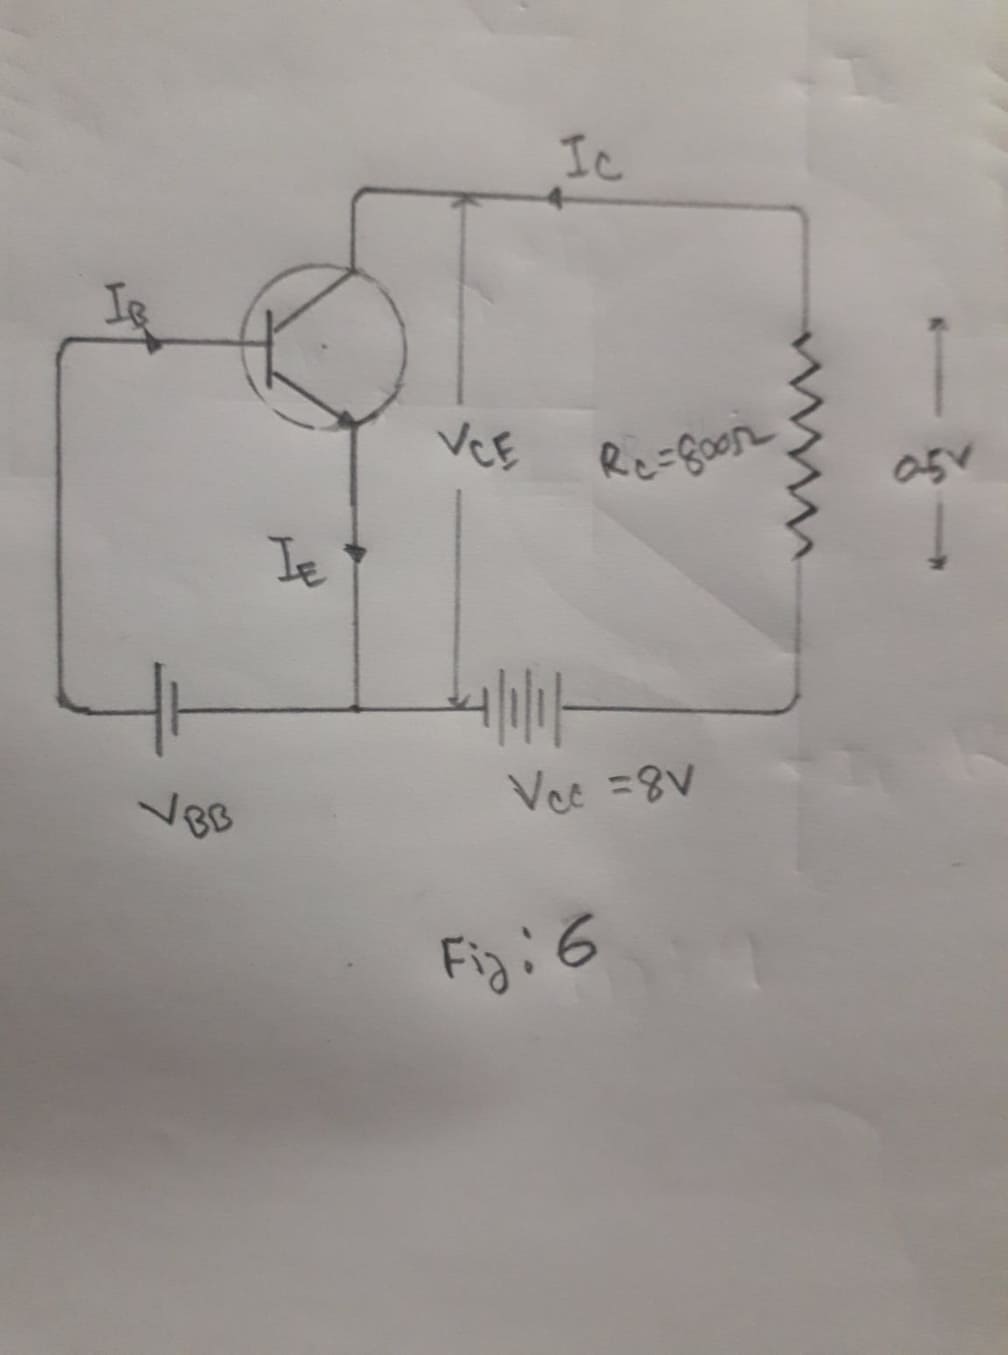 IC
IB
VCE
RC=800Ω
0.5V
IE
VBB
VCC =8V
Fig: 6